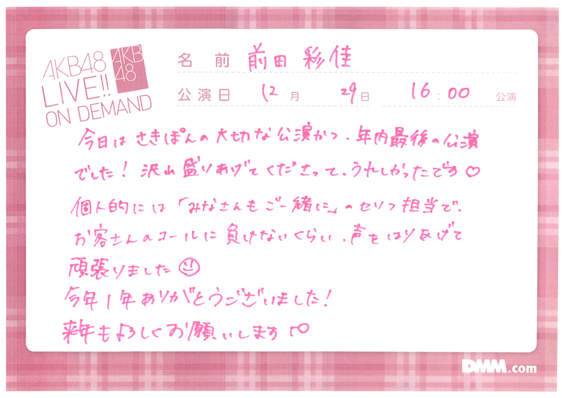 AKB48
LIVE!!
ON DEMAND
AKB
48
名前 前田彩佳
公演日 12月 29日 16:00 公演
今日はさきぽんの大切な公演かつ、年内最後の公演
でした！沢山盛りあげてくださって、うれしかったです♡
個人的には「みなさんもご一緒に」のセリフ担当で、
お客さんのコールに負けないくらい、声をはりあげて
頑張りました☺
今年1年ありがとうございました！
来年もよろしくお願いします♡
DMM.com